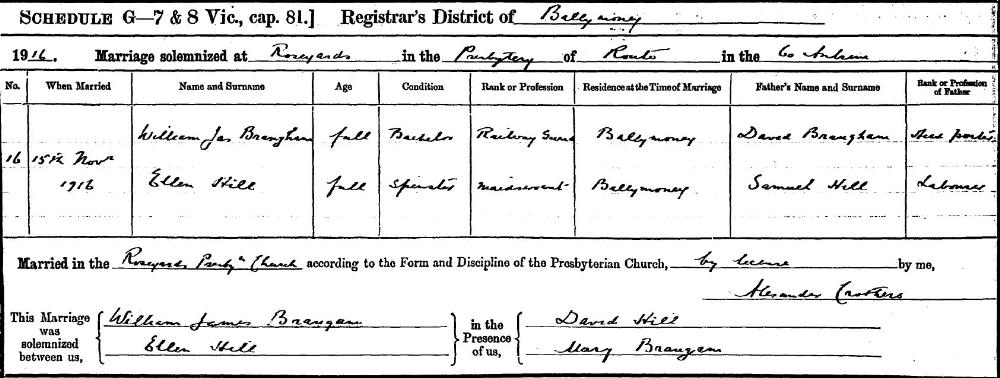 SCHEDULE G—7 & 8 Vic., cap. 81.] Registrar's District of Ballymoney
1916. Marriage solemnized at Roseyards in the Presbytery of Route in the Co Antrim
No. When Married Name and Surname Age Condition Rank or Profession Residence at the Time of Marriage Father's Name and Surname Rank or Profession of Father
William Jas Brangham full Bachelor Railway Ballymoney David Brangham Head porter
16 15th Novr
1916 Ellen Hill full Spinster maidservant Ballymoney Samuel Hill Labourer
Married in the Roseyards Presbyn Church according to the Form and Discipline of the Presbyterian Church, by license by me,
Alexander Crothers
This Marriage was solemnized between us, William James Braugam in the Presence of us, David Hill
Ellen Hill Mary Braugam